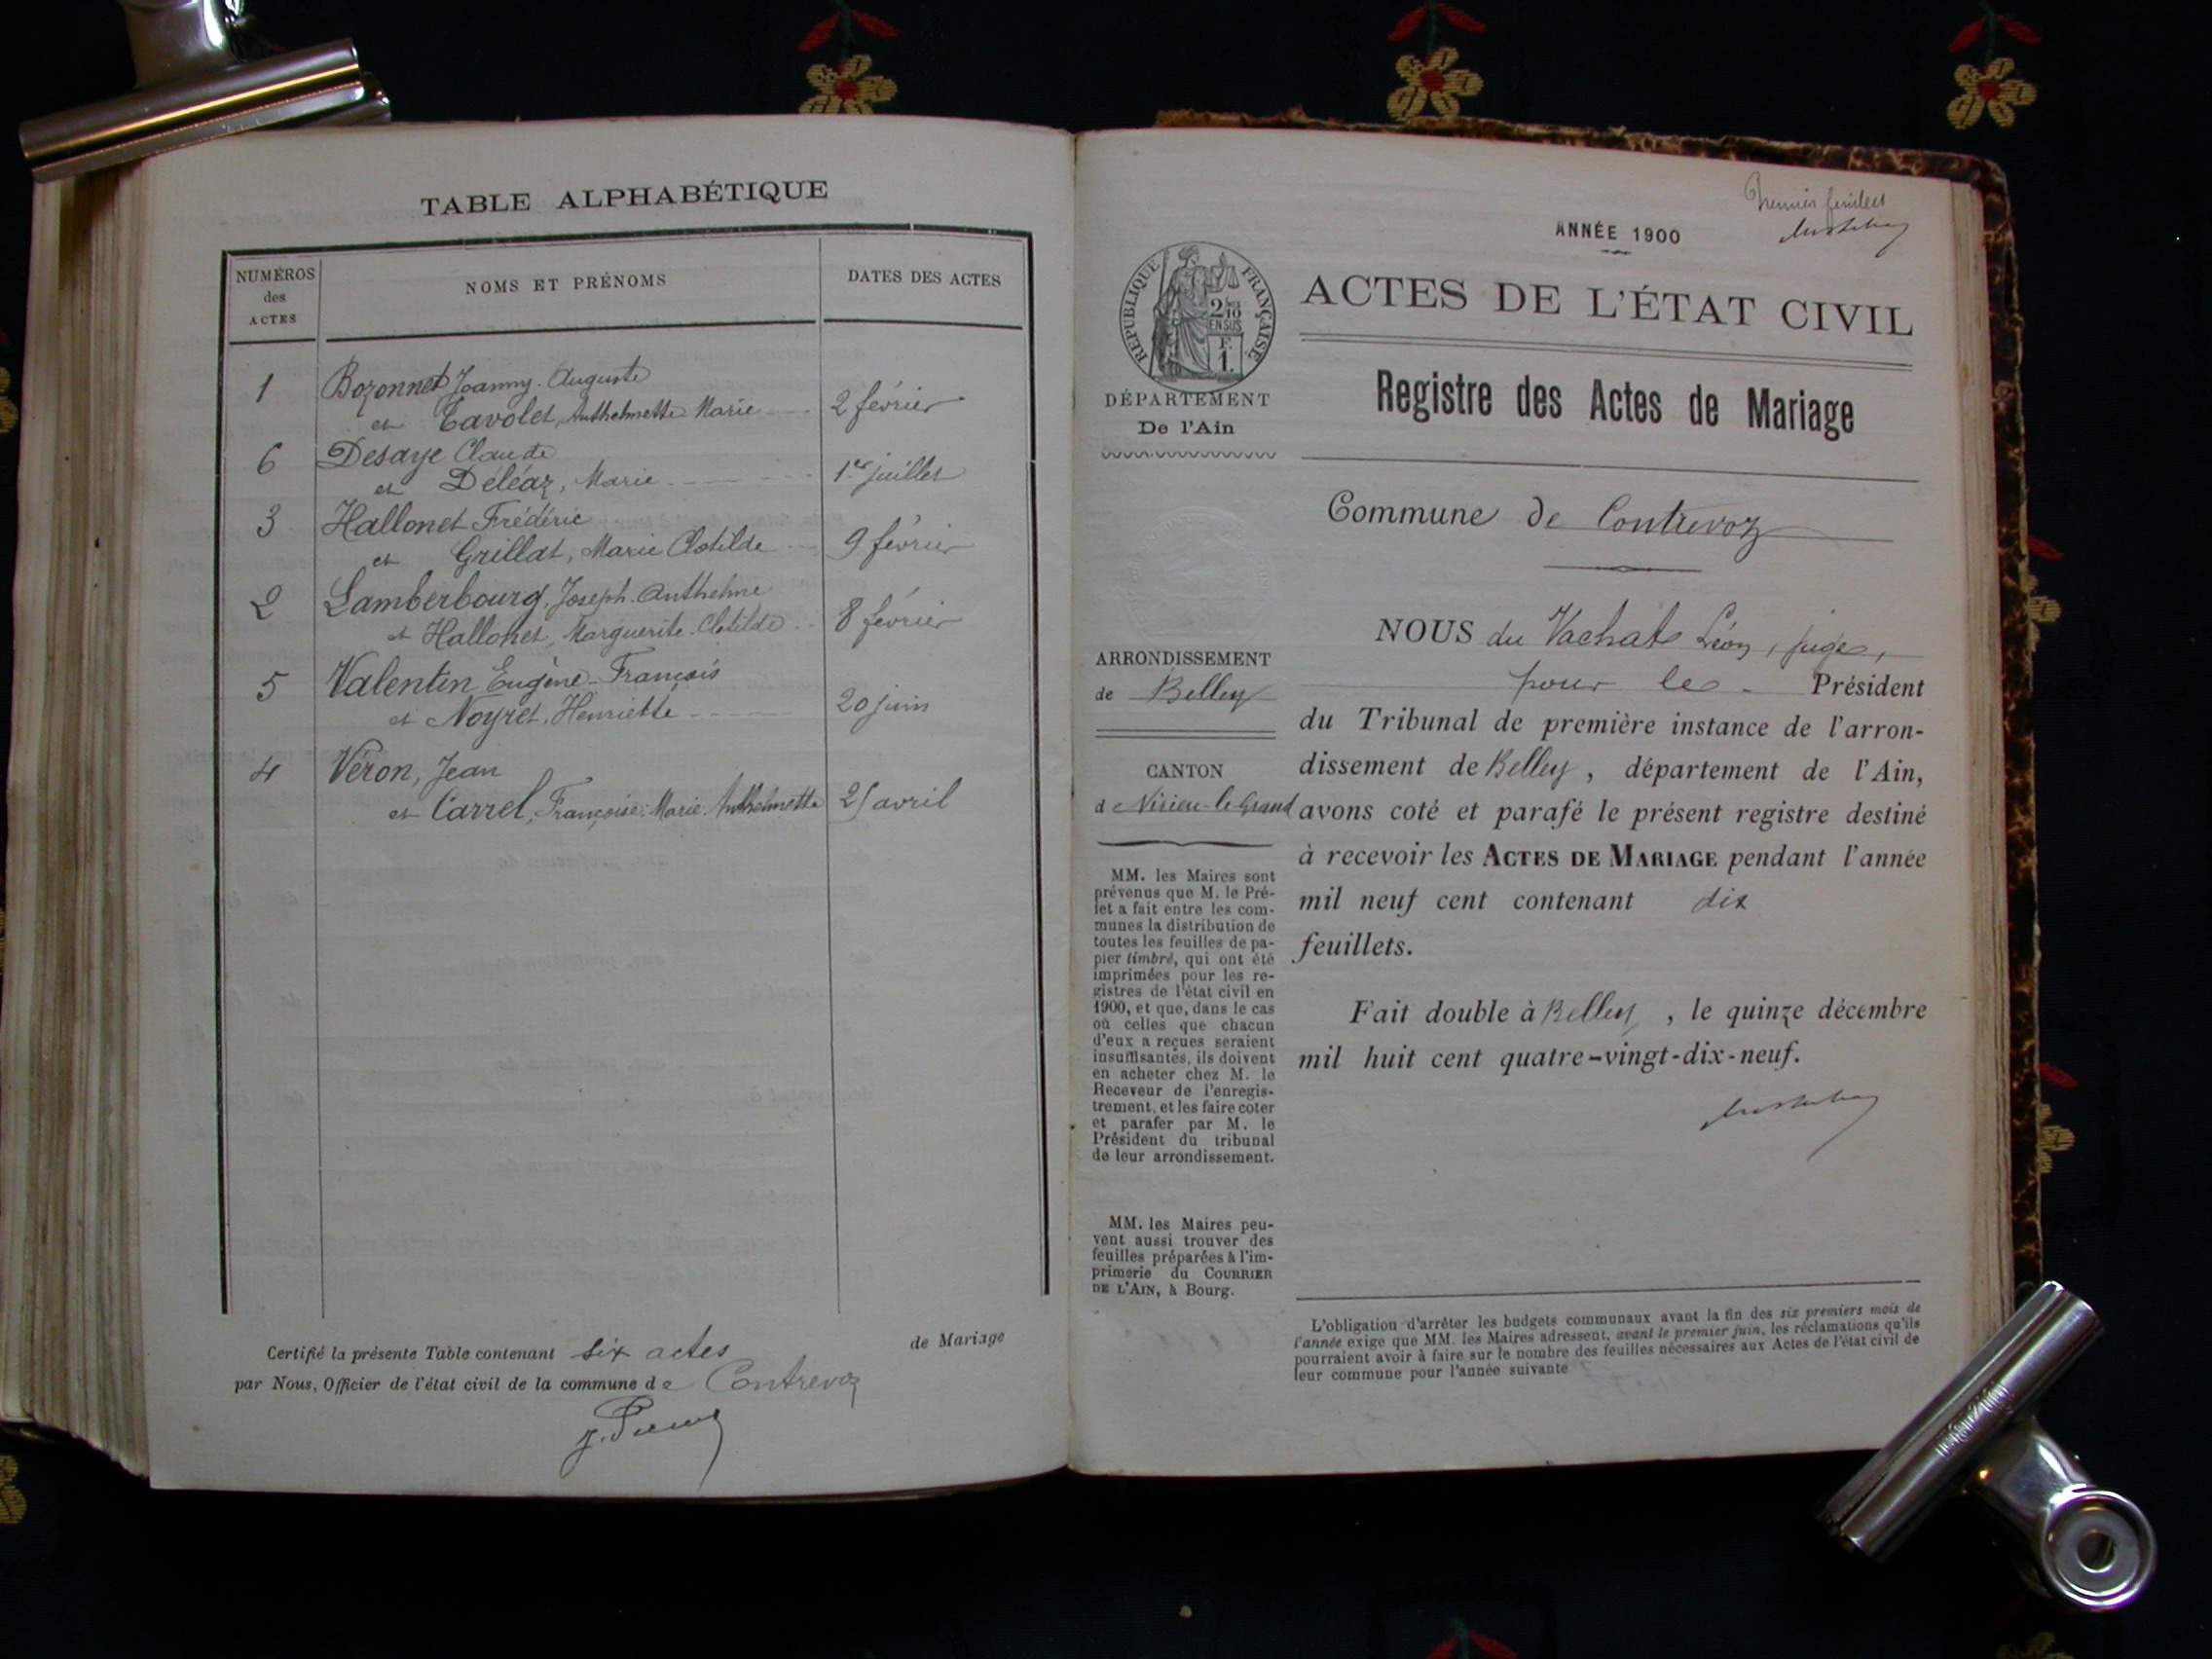 TABLE ALPHABÉTIQUE
NUMÉROS des ACTES
NOMS ET PRÉNOMS
DATES DES ACTES
1 Bozonnet Joanny-Auguste
et Tavolet, Anthelmette Marie 2 février
6 Desaye Claude
et Déléaz, Marie 1er juillet
3 Hallonet Frédéric
et Grillat, Marie Clotilde 9 février
2 Lamberbourg, Joseph-Anthelme
et Hallonet, Marguerite-Clotilde 8 février
5 Valentin Eugène-François
et Noyret, Henriette 20 juin
4 Véron, Jean
et Carrel, Françoise-Marie-Anthelmette 25 avril
Certifié la présente Table contenant six actes de Mariage
par Nous, Officier de l'état civil de la commune de Contrevoz
Premier feuillet
ANNÉE 1900
RÉPUBLIQUE FRANÇAISE
2/10
EN SUS
F.
1.
ACTES DE L'ÉTAT CIVIL
Registre des Actes de Mariage
DÉPARTEMENT
De l'Ain
Commune de Contrevoz
ARRONDISSEMENT
de Belley
CANTON
de Virieu-le-Grand
MM. les Maires sont
prévenus que M. le Pré-
fet a fait entre les com-
munes la distribution de
toutes les feuilles de pa-
pier timbré, qui ont été
imprimées pour les re-
gistres de l'état civil en
1900, et que, dans le cas
où celles que chacun
d'eux a reçues seraient
insuffisantes, ils doivent
en acheter chez M. le
Receveur de l'enregis-
trement, et les faire coter
et parafer par M. le
Président du tribunal
de leur arrondissement.
MM. les Maires peu-
vent aussi trouver des
feuilles préparées à l'im-
primerie du COURRIER
DE L'AIN, à Bourg.
NOUS du Vachat Léon, juge,
pour le Président
du Tribunal de première instance de l'arron-
dissement de Belley, département de l'Ain,
avons coté et parafé le présent registre destiné
à recevoir les ACTES DE MARIAGE pendant l'année
mil neuf cent contenant dix
feuillets.
Fait double à Belley, le quinze décembre
mil huit cent quatre-vingt-dix-neuf.
L'obligation d'arrêter les budgets communaux avant la fin des six premiers mois de
l'année exige que MM. les Maires adressent, avant le premier juin, les réclamations qu'ils
pourraient avoir à faire sur le nombre des feuilles nécessaires aux Actes de l'état civil de
leur commune pour l'année suivante